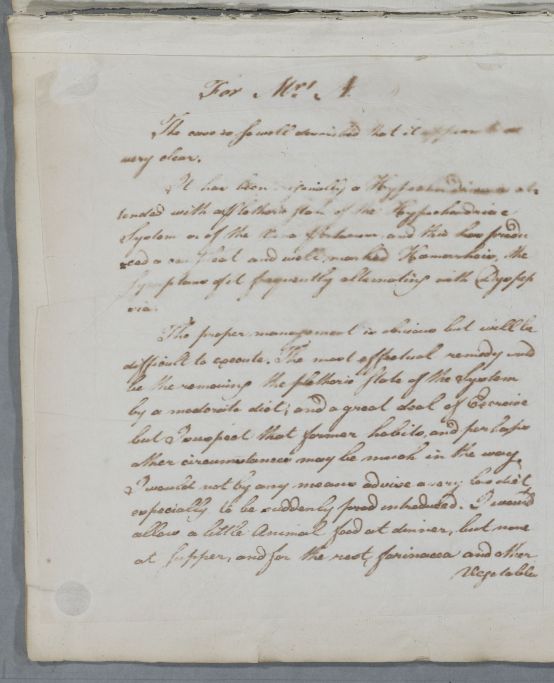 For Mrs. A
The case is so well described that it appears to me
very clear.
It has been originally a Hypochondriasis at-
tended with a plethoric state of the Hypochondriac
System or of the Vena Portarum and this has produ
ced a very great and well marked Hæmorrhois, the
Symptoms of it frequently alternating with Dyspep
sia.
The proper management is obvious but will be
difficult to execute. The most effectual remedy would
be the removing the plethoric state of the System
by a moderate diet; and a great deal of Exercise
but I suspect that former habits, and perhaps
other circumstances may be much in the way
I would not by any means advise a very low diet
especially to be suddenly introduced. I would
allow a little Animal food at dinner, but none
at Supper, and for the rest, farinacea and other
Vegetable